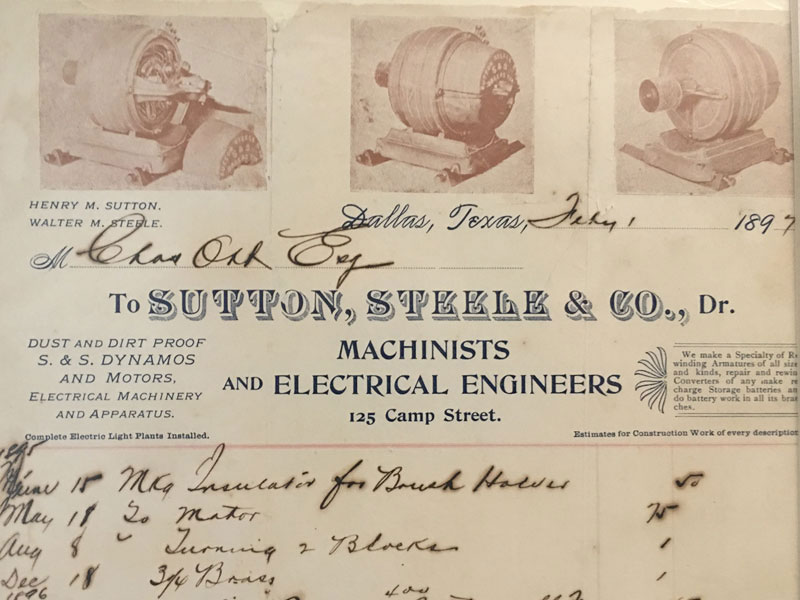 HENRY M. SUTTON,
WALTER M. STEELE.
Dallas, Texas, Feby 1 1897
M Chas Ott Esq
To SUTTON, STEELE & CO., Dr.
DUST AND DIRT PROOF
S. & S. DYNAMOS
AND MOTORS,
ELECTRICAL MACHINERY
AND APPARATUS.
MACHINISTS
AND ELECTRICAL ENGINEERS
125 Camp Street.
We make a Specialty of Re
winding Armatures of all size
and kinds, repair and rewin
Converters of any make re
charge Storage batteries an
do battery work in all its bran
ches.
Complete Electric Light Plants Installed.
Estimates for Construction Work of every description
1895
June 15 Mkg Insulator for Brush Holder 50
May 18 To Motor 75
Aug 8 " Turning 2 Blocks 1
Dec 18 3/4 Brass 1
1896
400